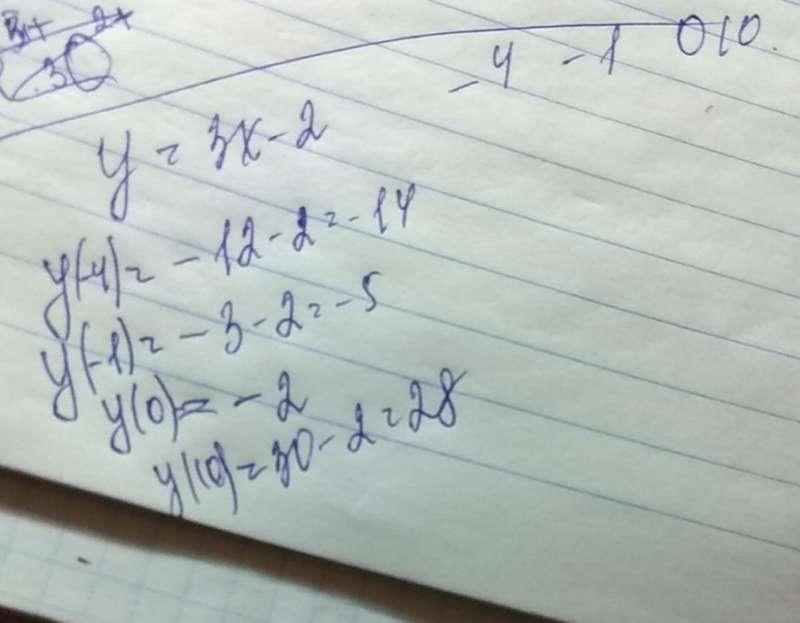 -4 -1 0 10.
y = 3x - 2
y(-4) = -12 - 2 = -14
y(-1) = -3 - 2 = -5
y(0) = -2
y(10) = 30 - 2 = 28